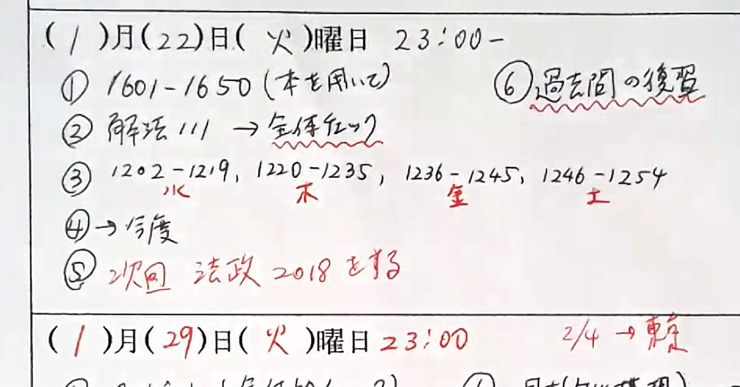 (1)月(22)日(火)曜日 23:00-
① 1601-1650(本を用いて)
⑥過去問の復習
② 解法111 → 全体チェック
③ 1202-1219, 1220-1235, 1236-1245, 1246-1254
水 木 金 土
④→今度
⑤ 次回 法政2018をする
(1)月(29)日(火)曜日 23:00 2/4→東京